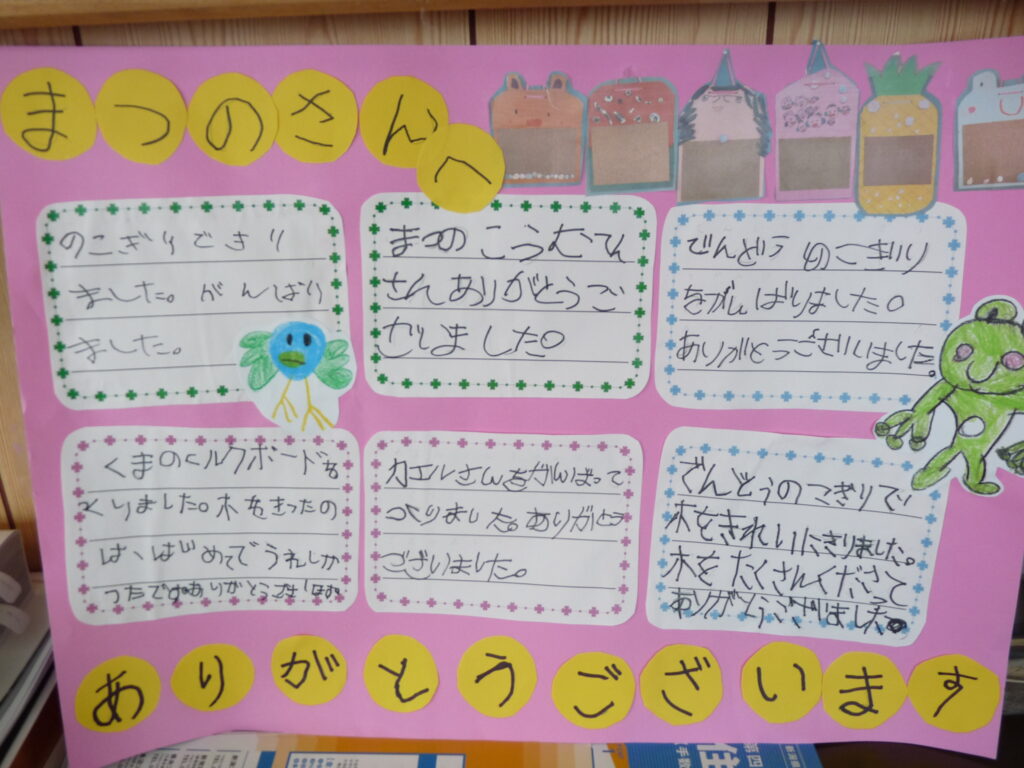 まつのさんへ
のこぎりできり
ました。がんばり
ました。
まつのこうむてん
さんありがとうご
ざいました。
でんどうのこぎり
をがんばりました。
ありがとうございました。
くまのコルクボードを
つくりました。木をきったの
は、はじめてでうれしか
ったです。ありがとうござい
カエルさんをがんばって
つくりました。ありがとう
ございました。
でんどうのこぎりで
木をきれいにきりました。
木をたくさんくださって
ありがとうございました。
ありがとうございます
第四
住
手